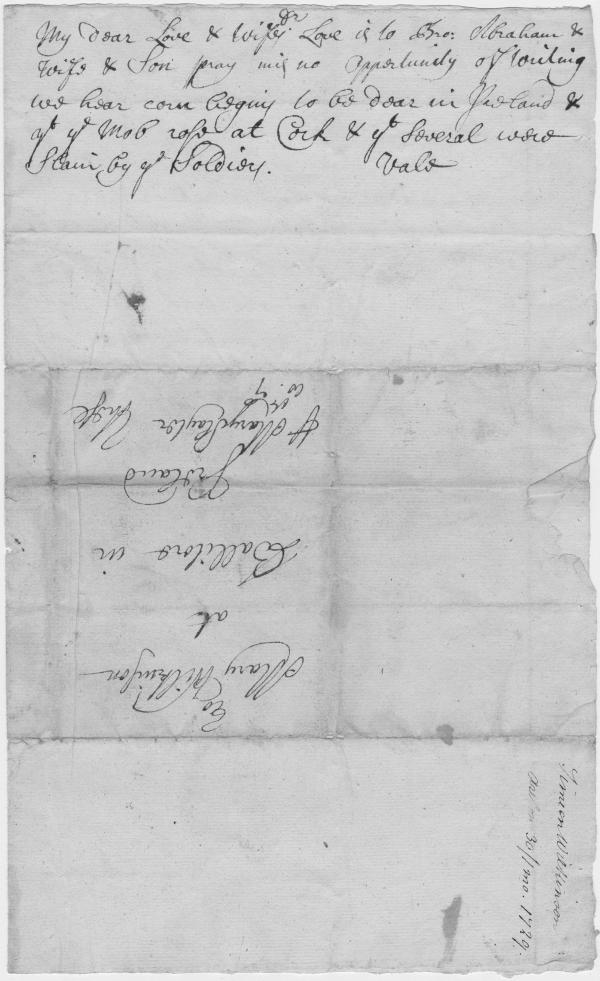 My dear Love & wifes dr Love is to Bro: Abraham &
wife & Son pray mis no oppertunity of writing
we hear corn begins to be dear in Ireland &
yt ye Mob rose at Cork & yt Several were
Slain by ye Soldiers. Vale
To
Mary Wilkinson
at
Ballitore in
Ireland
Mary Slayter
Simeon Wilkinson
30/1mo. 1729.